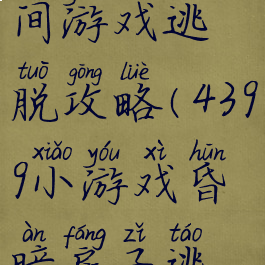 间游戏逃
tuō gōng lüè
脱攻略(439
xiǎo yóu xì hūn
9小游戏昏
àn fáng zǐ táo
暗房子逃